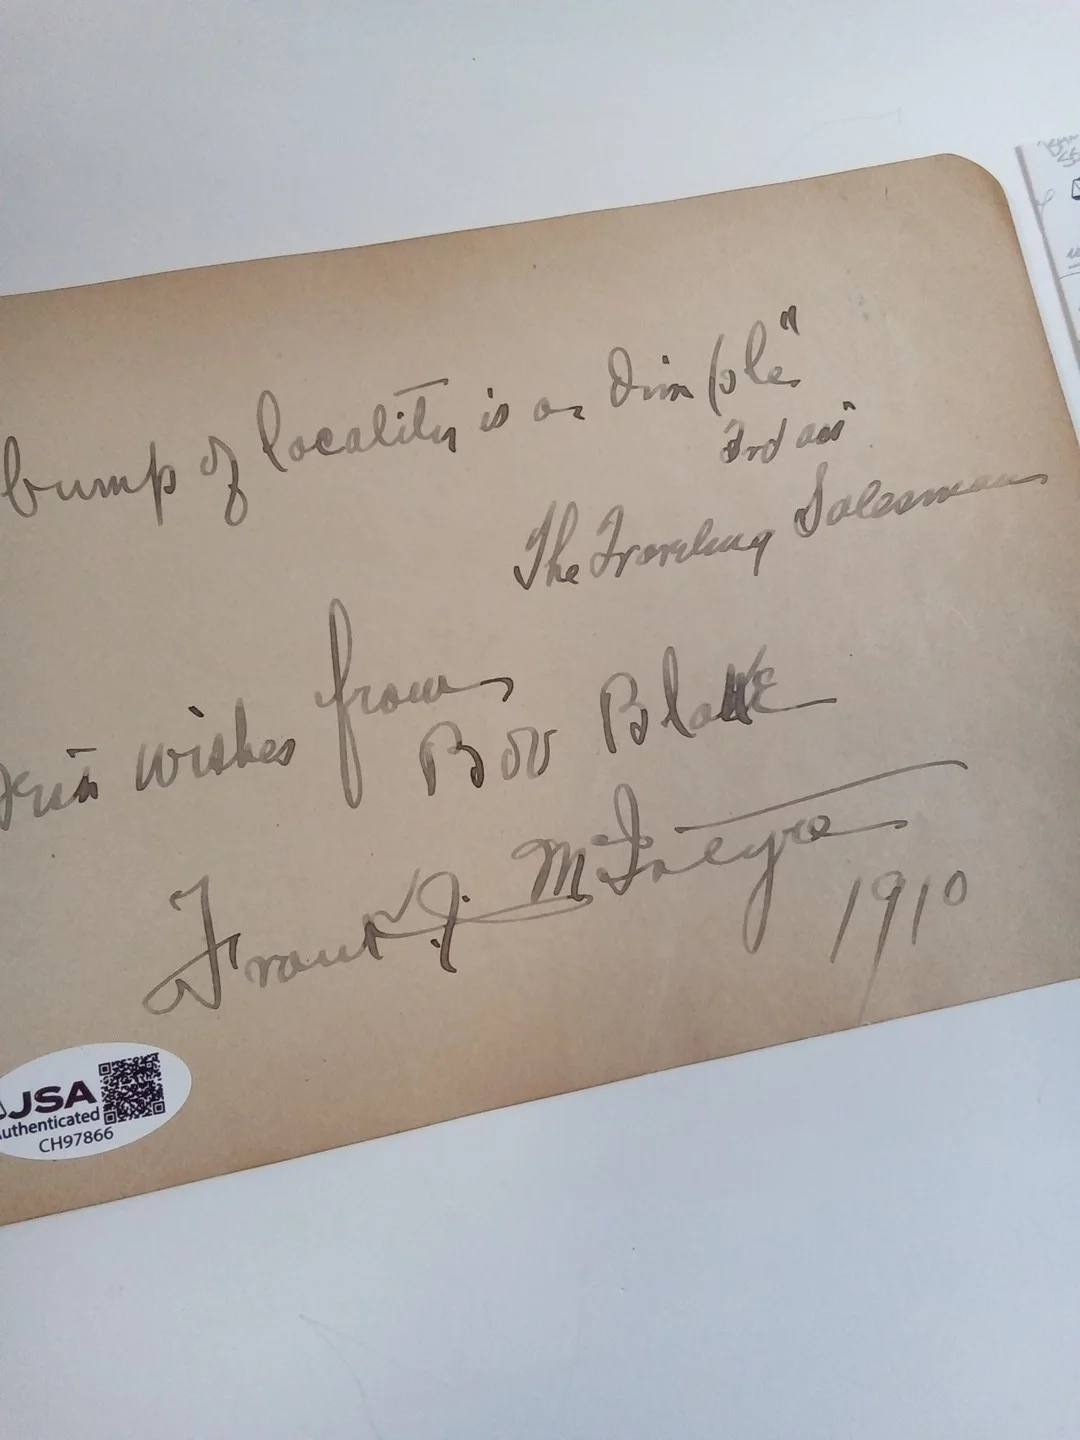 bump of locality is a Dimple"
3rd act
The Traveling Salesman
wishes from
Bob Blake
Frank J. McIntyre
1910
JSA
Authenticated
CH97866